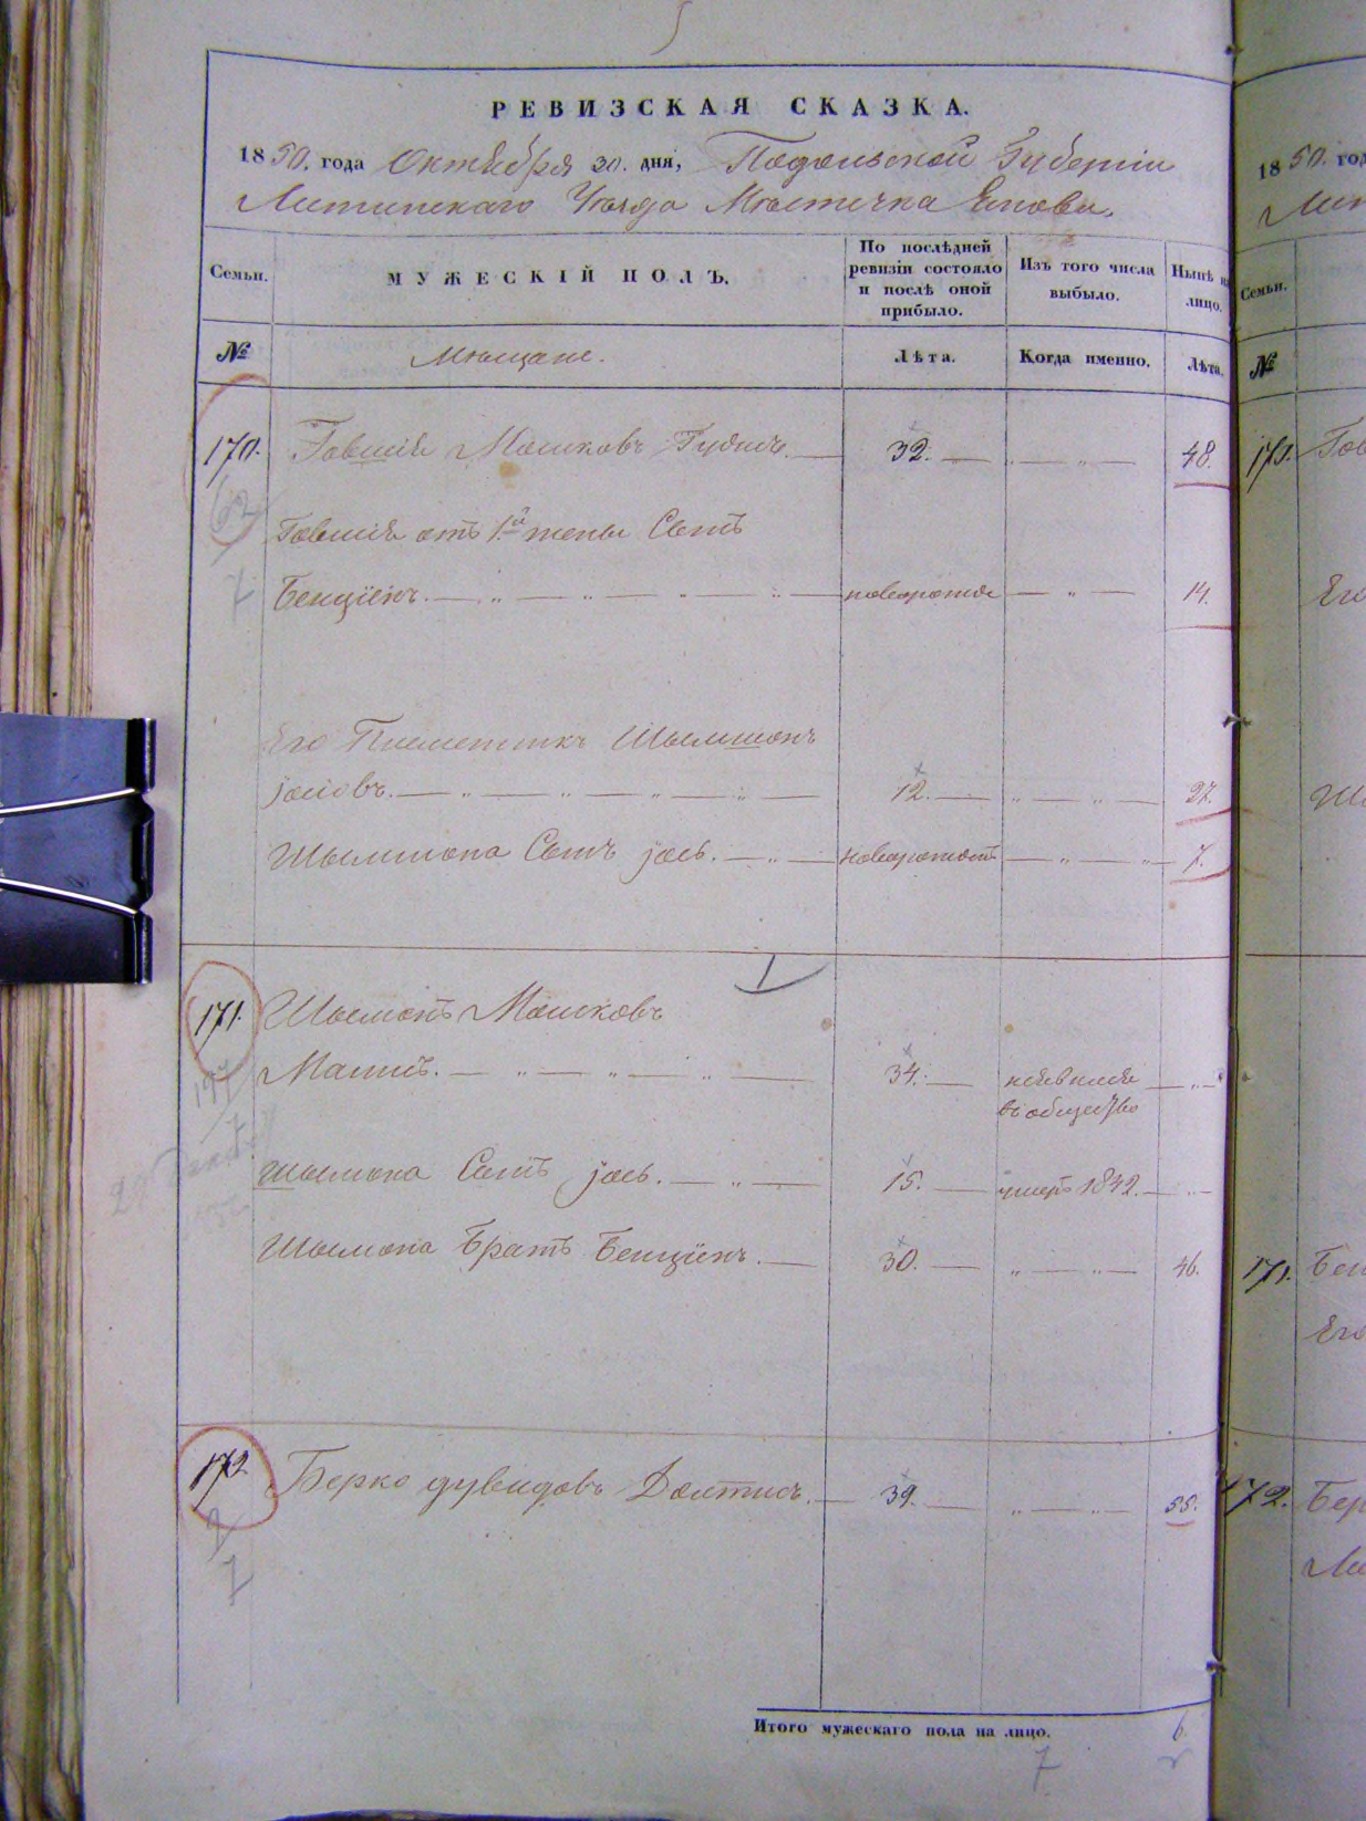 РЕВИЗСКАЯ СКАЗКА.
1850. года Октября 30. дня, Подольской Губернии
Литинского Уѣзда Мѣстечка
Семьи.
МУЖЕСКІЙ ПОЛЪ.
По послѣдней ревизіи состояло и послѣ оной прибыло.
Изъ того числа выбыло.
Нынѣ на лицо.
№
Мѣщане.
Лѣта.
Когда именно.
Лѣта.
170. Говшія Мошковъ 32. 48.
62
7
Говшія отъ 1й жены Сынъ
Бенціенъ. новорожде 14.
Его Племенникъ Шылмшонъ
Јосіовъ. 12. 27.
Шылмшона Сынъ Јось. новорожденъ 7.
171. Шылмонъ Мошковъ
197
7
34. неявился
въ общество
Шылмона Сынъ Јось. 15. умеръ 1842.
Шылмона Братъ Бенціенъ. 30. 46.
172. Берко Дувидовъ 39. 55.
7
Итого мужескаго пола на лицо. 6
7
1850. год
Семьи.
№
170. Гов
Его
171. Бен
Его
172. Бер